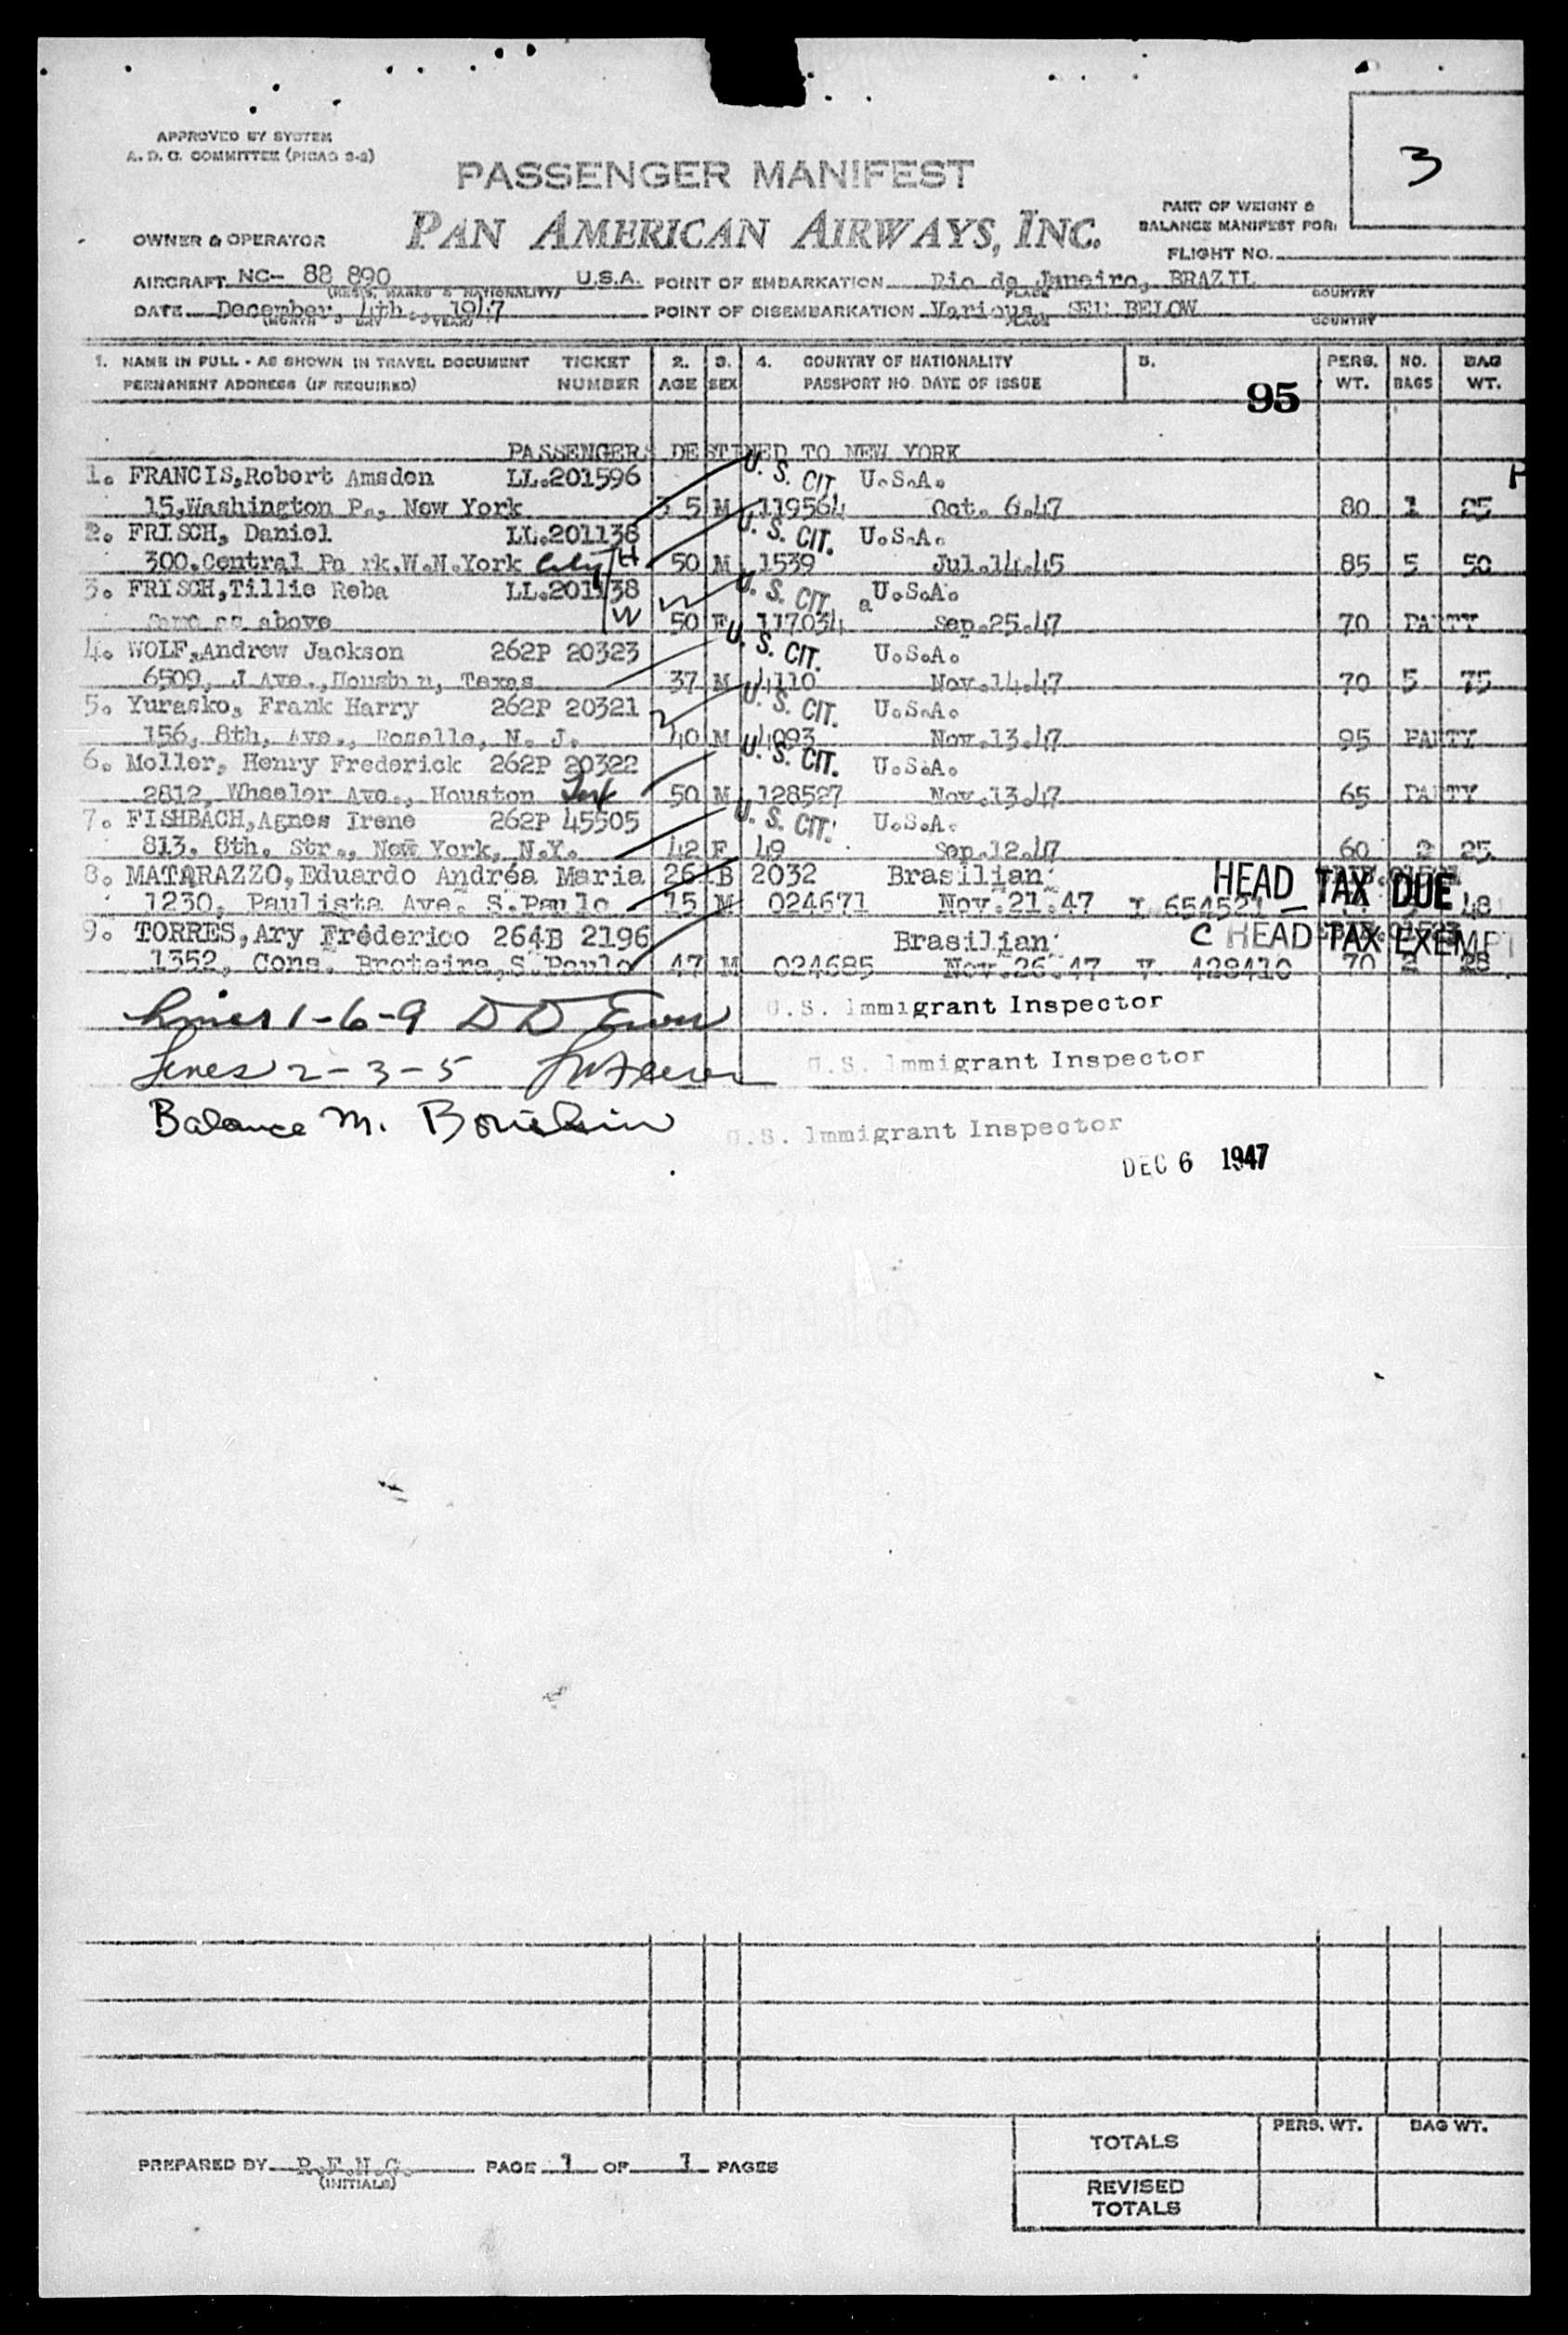 3
APPROVED BY SYSTEM
A. D. C. COMMITTEE (PICAO 9-2)
PASSENGER MANIFEST
PAN AMERICAN AIRWAYS, INC.
PART OF WEIGHT &
BALANCE MANIFEST FOR:
FLIGHT NO.
OWNER & OPERATOR
AIRCRAFT NC- 88 890 U.S.A. POINT OF EMBARKATION Rio de Janeiro, BRAZIL
(REG'S. MARKS & NATIONALITY) PLACE COUNTRY
DATE December, 4th., 1947 POINT OF DISEMBARKATION Various, SEE BELOW
(MONTH DAY YEAR) PLACE COUNTRY
1. NAME IN FULL - AS SHOWN IN TRAVEL DOCUMENT TICKET 2. 3. 4. COUNTRY OF NATIONALITY 5. PERS. NO. BAG
PERMANENT ADDRESS (IF REQUIRED) NUMBER AGE SEX PASSPORT NO. DATE OF ISSUE WT. BAGS WT.
95
PASSENGERS DESTINED TO NEW YORK
1. FRANCIS,Robert Amsden LL.201596 U. S. CIT U.S.A.
15,Washington P., New York 3 5 M 119564 Oct. 6.47 80 1 25
2. FRISCH, Daniel LL.201138 U. S. CIT. U.S.A.
300,Central Pa rk.W.N.York City H 50 M 1539 Jul.14.45 85 5 50
3. FRISCH,Tillie Reba LL.201138 U. S. CIT. a U.S.A.
Same as above W 50 F 117034 Sep.25.47 70 PARTY
4. WOLF,Andrew Jackson 262P 20323 U. S. CIT. U.S.A.
6509, J Ave.,Houston, Texas 37 M 4110 Nov.14.47 70 5 75
5. Yurasko, Frank Harry 262P 20321 U. S. CIT. U.S.A.
156, 8th, Ave., Roselle, N. J. 40 M 4093 Nov.13.47 95 PARTY
6. Moller, Henry Frederick 262P 20322 U. S. CIT. U.S.A.
2812, Wheeler Ave., Houston 50 M 128527 Nov.13.47 65 PARTY
7. FISHBACH,Agnes Irene 262P 45505 U. S. CIT. U.S.A.
813. 8th. Str., New York, N.Y. 42 F 49 Sep.12.47 60 2 25
8. MATARAZZO,Eduardo Andréa Maria 261B 2032 Brasilian HEAD TAX DUE
1230, Paulista Ave. S.Paulo 15 M 024671 Nov.21.47 I 654521 48
9. TORRES,Ary Fréderico 264B 2196 Brasilian C HEAD TAX EXEMPT
1352, Cons. Broteira,S.Paulo 47 M 024685 Nov.26.47 V. 428410 70 2 28
Lines 1-6-9 U.S. Immigrant Inspector
Lines 2-3-5 U.S. Immigrant Inspector
Balance M. U.S. Immigrant Inspector
DEC 6 1947
PERS. WT. BAG WT.
TOTALS
PREPARED BY R.F.N.C. PAGE 1 OF 1 PAGES
(INITIALS)
REVISED
TOTALS